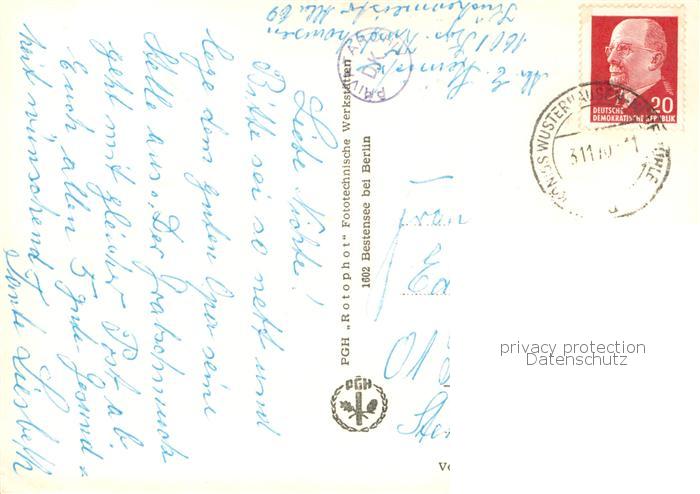 Liebe Nichte!
Bitte sei so nett und
lege dem guten Opa seine
Stelle aus. Der Grabschmuck
geht mit gleicher Post ab
Euch allen 5 gute Gesund=
heit wünschend
Tante Liesbeth
1601
PRIVAT
PGH „Rotophot“ Fototechnische Werkstätten
1602 Bestensee bei Berlin
PGH
20
DEUTSCHE
DEMOKRATISCHE REPUBLIK
KÖNIGS WUSTERHAUSEN
Frau
01
privacy protection
Datenschutz